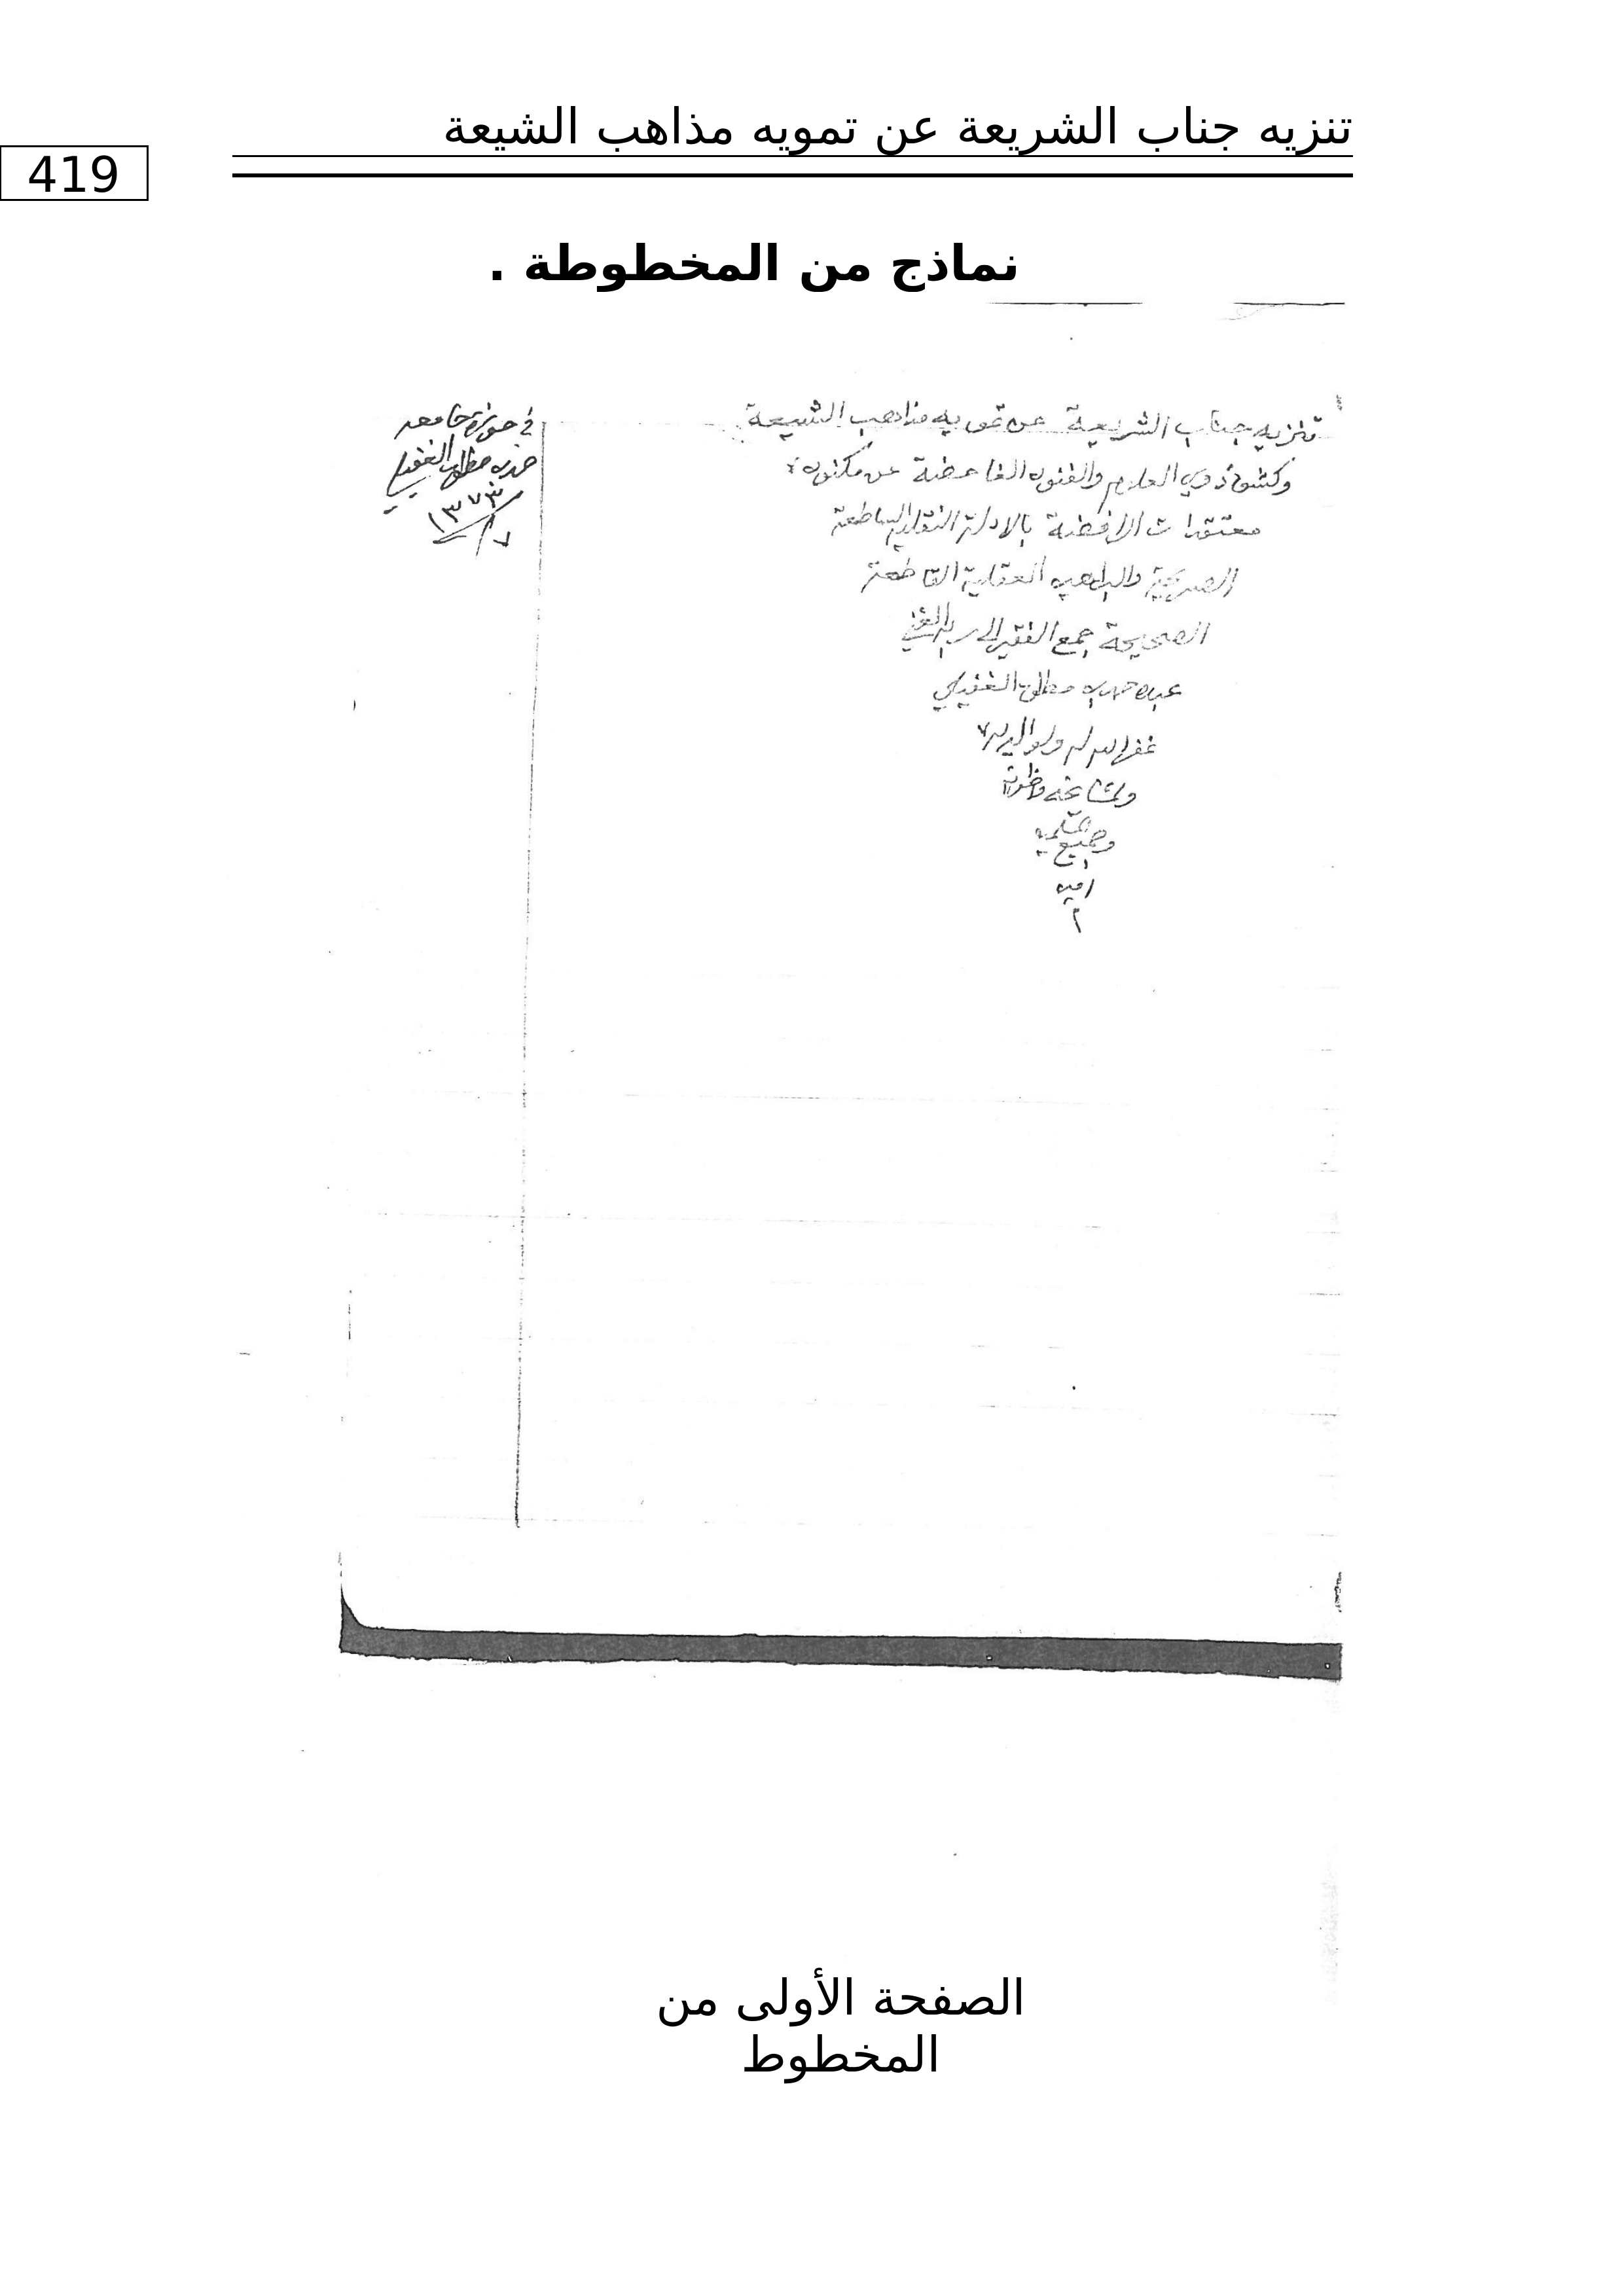 تنزيه جناب الشريعة عن تمويه مذاهب الشيعة
419
نماذج من المخطوطة .
تنزيه جناب الشريعة عن تمويه مذاهب الشيعة
وكشف ذوي العلوم والفنون الغامضة عن مكنون
معتقدات الرافضة بالادلة النقلية الساطعة
الصريحة والبراهين العقلية القاطعة
الصحيحة جمع الفقير الى ربه الغني
عبده حمد بن مطلق الغفيلي
غفر الله له ولوالديه
ولمشايخه واخوانه
وجميع المسلمين
امين
في حوزة جامعه
حمد بن مطلق الغفيلي
١٣٧٣
الصفحة الأولى من
المخطوط